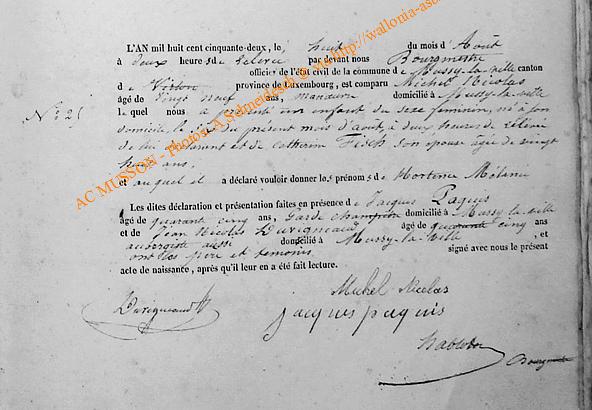 L'AN mil huit cent cinquante-deux, le huit du mois d'Août
à deux heures de relevée par devant nous Bourgmestre
officier de l'état civil de la commune de Mussy-la-ville canton
de Virton province de Luxembourg, est comparu Michel Nicolas
âgé de vingt neuf ans, manœuvre domicilié à Mussy-la-ville
lequel nous a présenté un enfant du sexe feminin, né à son
domicile, le du present mois d'août, à deux heures de relevée
de lui déclarant et de Catherine Fisch son epouse agée de vingt
ans,
et auquel il a déclaré vouloir donner les prénoms de Hortense Mélanie
Les dites déclaration et présentation faites en présence de Jacques Paquis
âgé de quarante cinq ans, Garde champêtre domicilié à Mussy-la-ville
et de Jean Nicolas Duvigneaud âgé de quarante cinq ans
aubergiste aussi domicilié à Mussy-la-ville, et
ont les père et temoins signé avec nous le présent
acte de naissance, après qu'il leur en a été fait lecture.
N° 21
Duvigneaud
Michel Nicolas
jacques paquis
AC MUSSON - Photos: A Schneidesch © http://wallonia-as